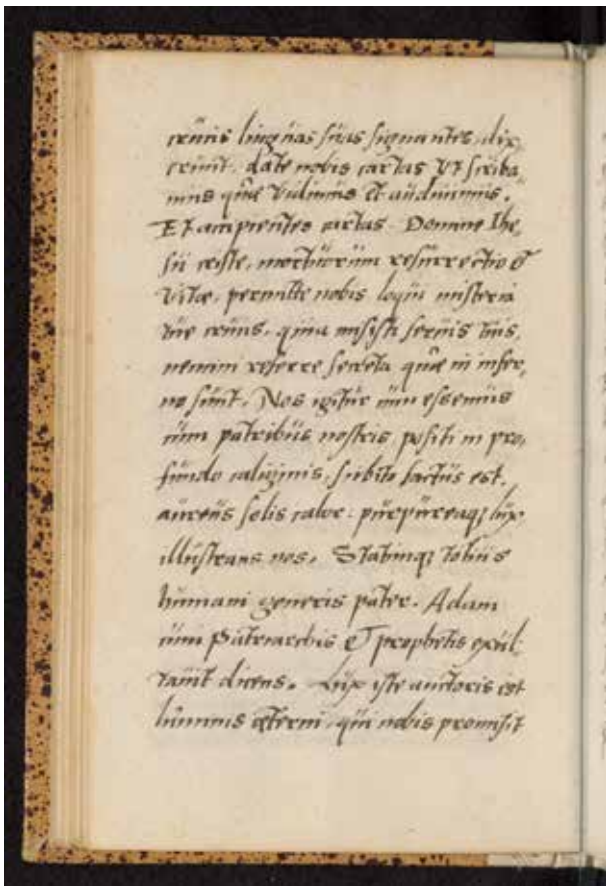 crucis linguas suas signantes, dix,
erunt. date nobis cartas Vt scriba
mus quæ Vidimus et audiuimus.
Et accipientes cartas Domine Ihe,
su criste, mortuorum resurrectio &
Vitæ, permitte nobis loqui misteria
tue crucis, quia misisti seruis tuis,
nemini referre secreta quæ in infer,
no sunt. Nos igitur cum essemus
cum patribus nostris positi in pro,
fundo caliginis, subito factus est,
aureus solis calor purpureaq; lux
illustrans nos. Statimq; totius
humani generis pater. Adam
cum Patriarchis & prophetis exul,
tauit dicens. Lux iste auctoris est
luminis æterni, qui nobis promisit